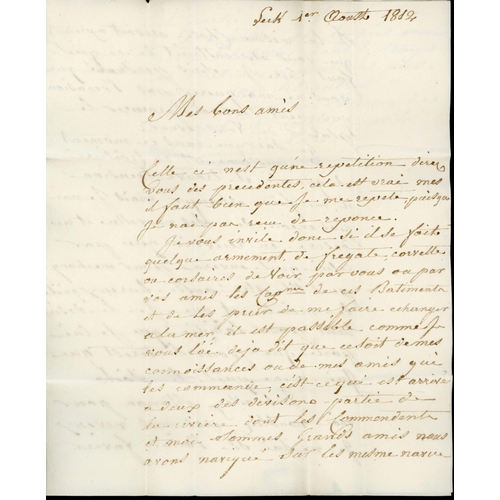 Leek 1er Aoust 1812
Mes bons amis
Celle ci nest qu'une repetition direz
vous des precedentes, cela est vrai mes
il faut bien que Je me repete, puisque
Je nai pas recu de reponce.
Je vous invite donc si il se faite
quelque armement, de fregate, corvette
ou corsaires de Voir par vous ou par
vos amis les Capnes de ces Batiments
et de les prier de me faire echanger
a la mer, il est passible comme Je
vous l'ai deja dit que ce soit de mes
connoissances ou de mes amis qui
les commande, c'est ce qui est arrivé
a deux des
partie de
la
dont les Commendents
et moi sommes grands amis nous
avons navigué sur les mesme navire